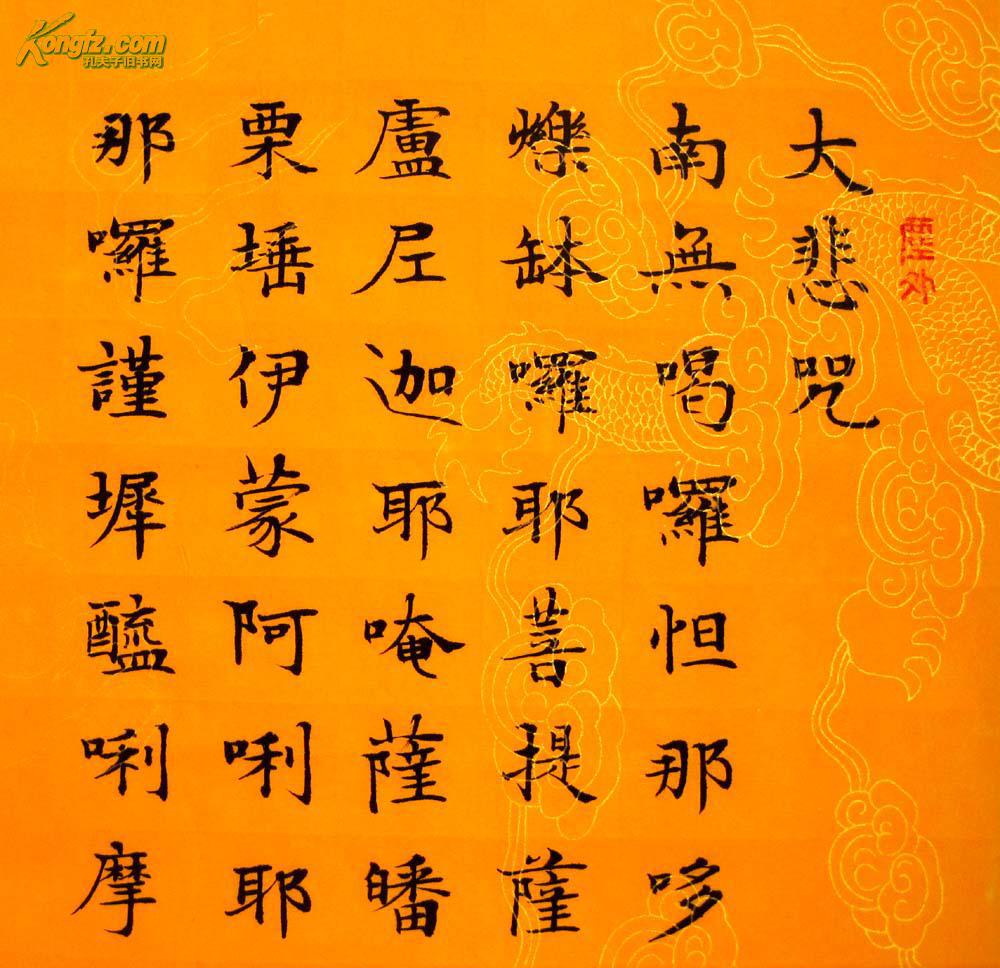 Kongfz.com
孔夫子旧书网
大悲咒
南無喝囉怛那哆
爍缽囉耶菩提薩
盧尼迦耶唵薩皤
栗埵伊蒙阿唎耶
那囉謹墀醯唎摩